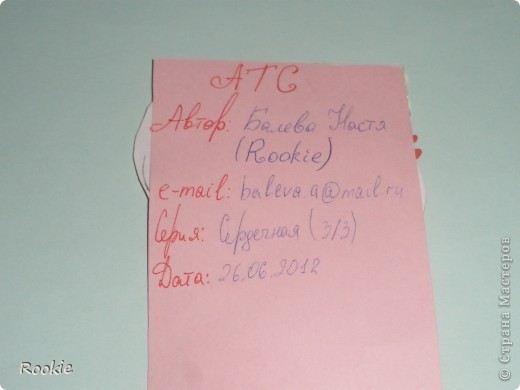 АТС
Автор: Балева Настя
(Rookie)
e-mail: baleva.a@mail.ru
Серия: Сердечная (3/3)
Дата: 26.06.2012
Rookie
© Страна Мастеров